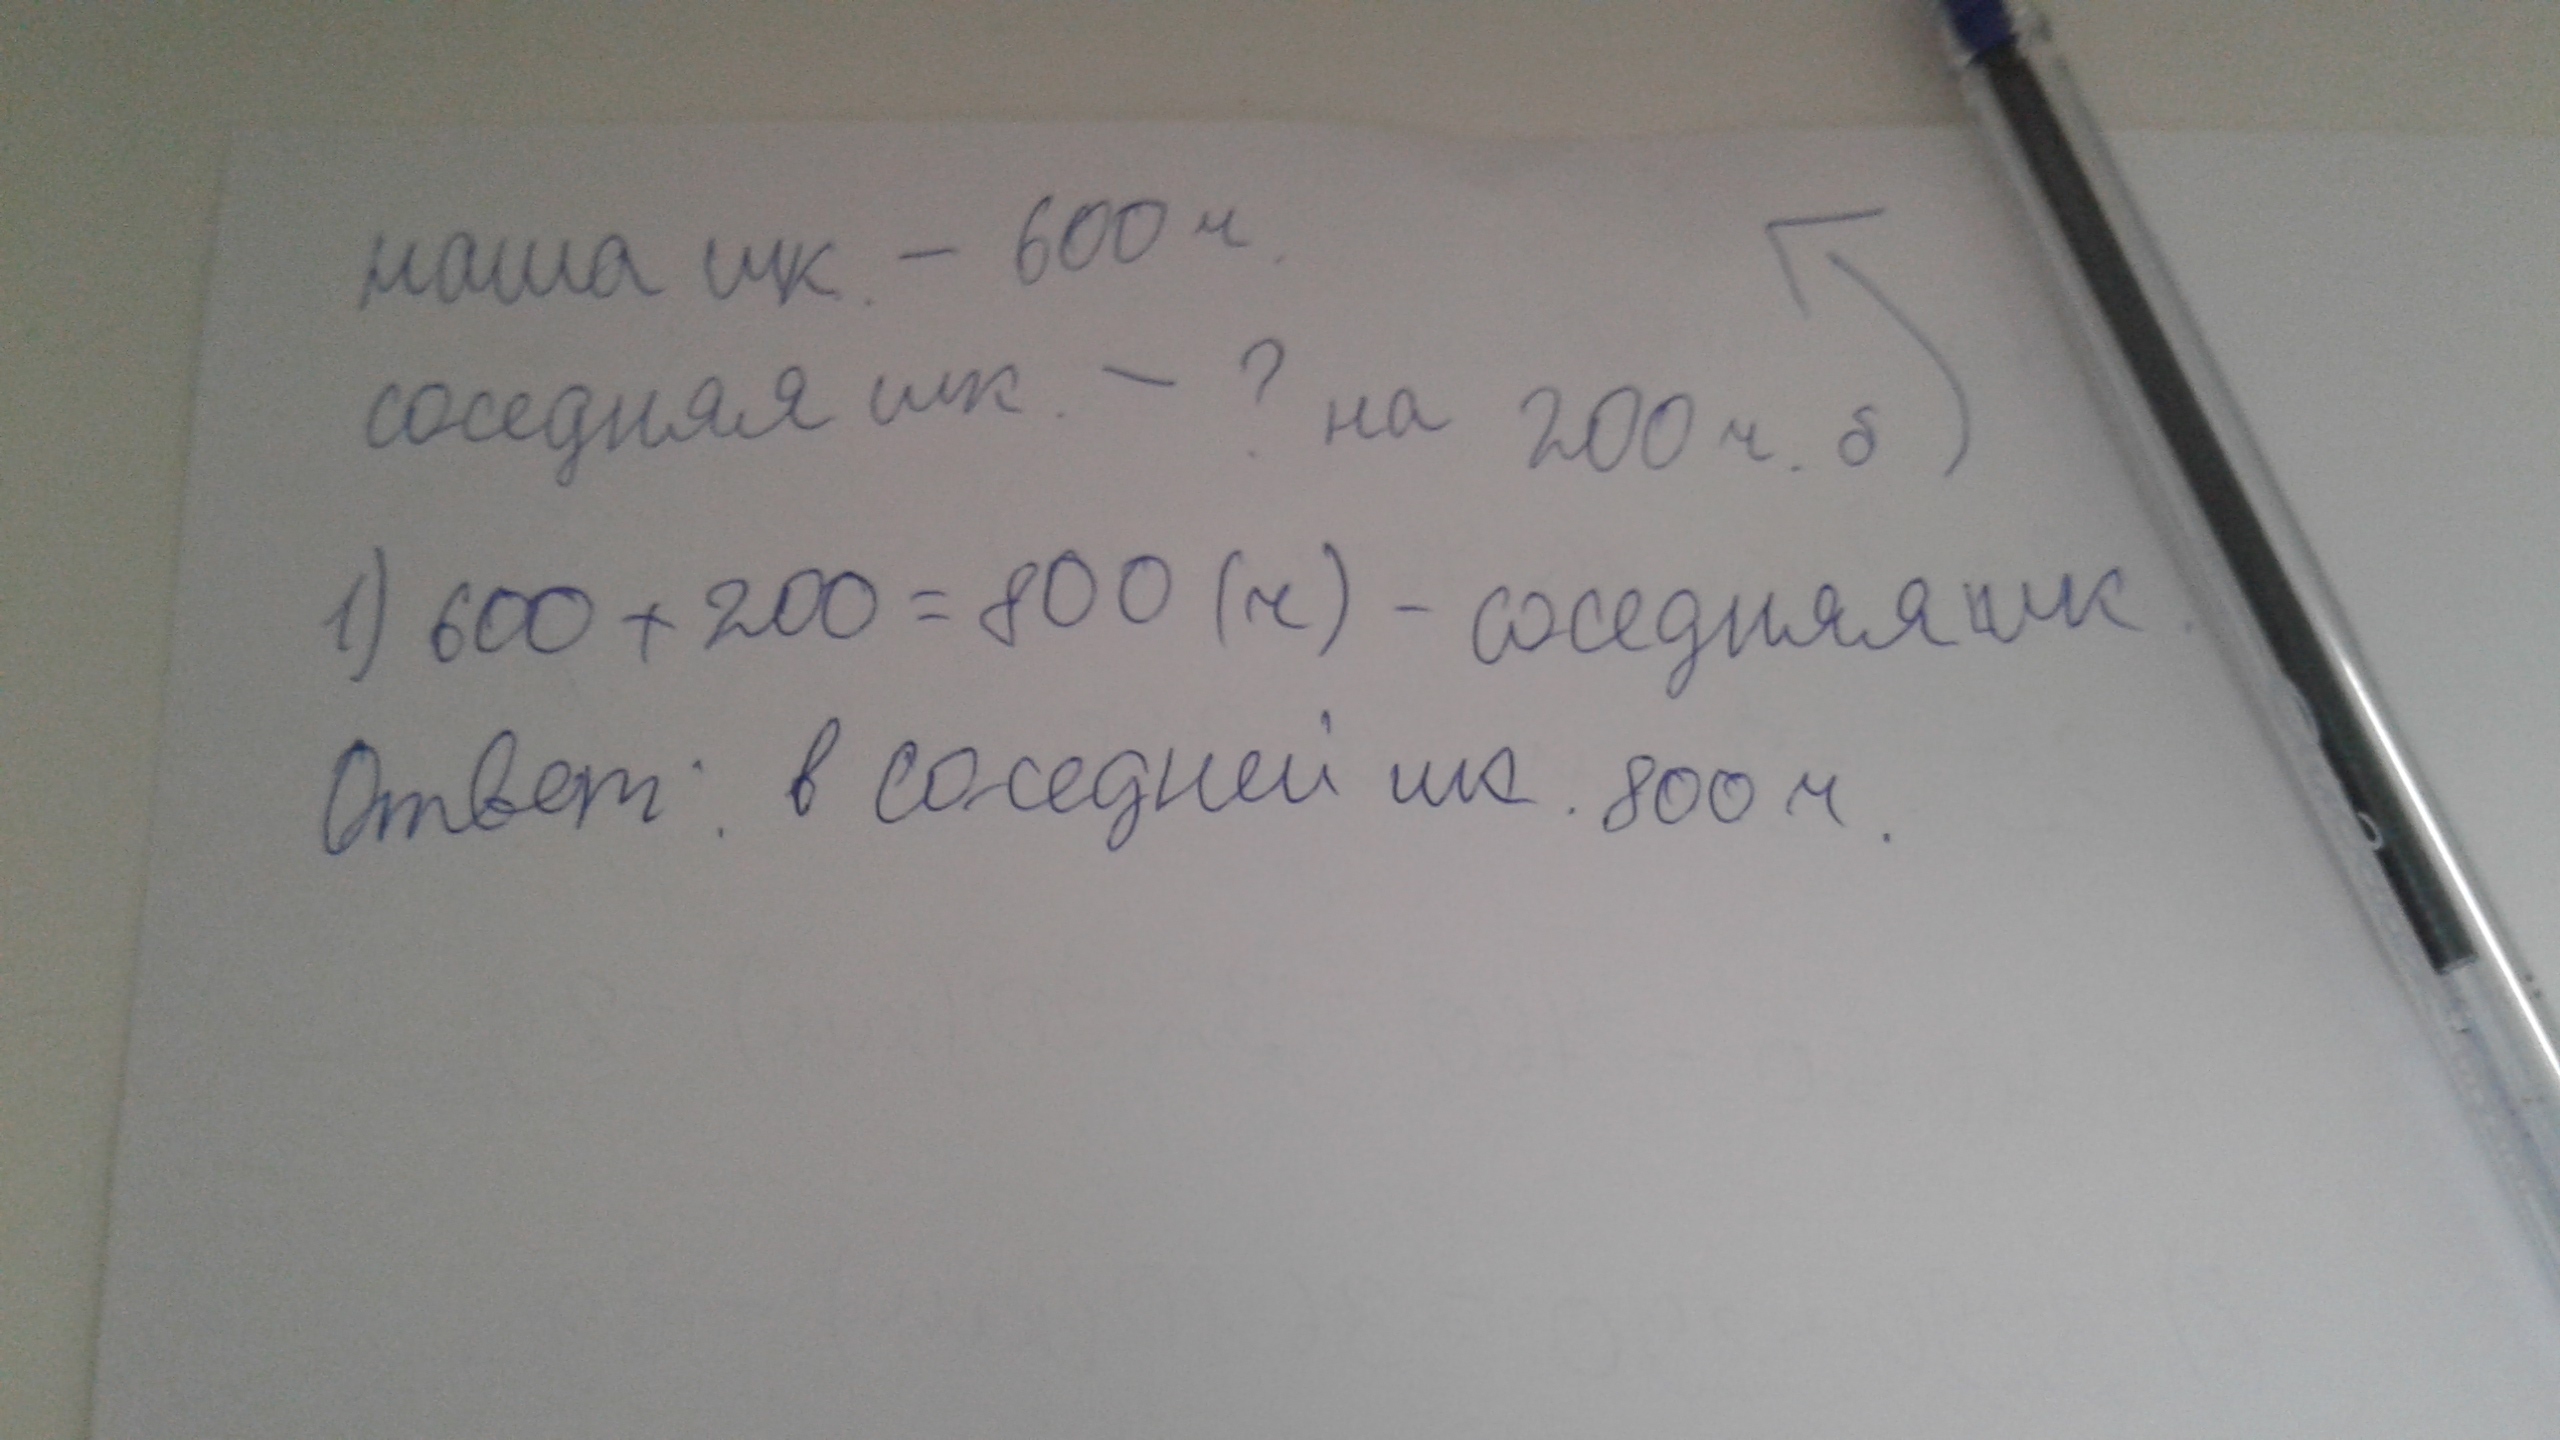 наша шк. - 600 ч.
соседняя шк. - ? на 200 ч. б
1) 600 + 200 = 800 (ч) - соседняя шк.
Ответ: в соседней шк. 800 ч.